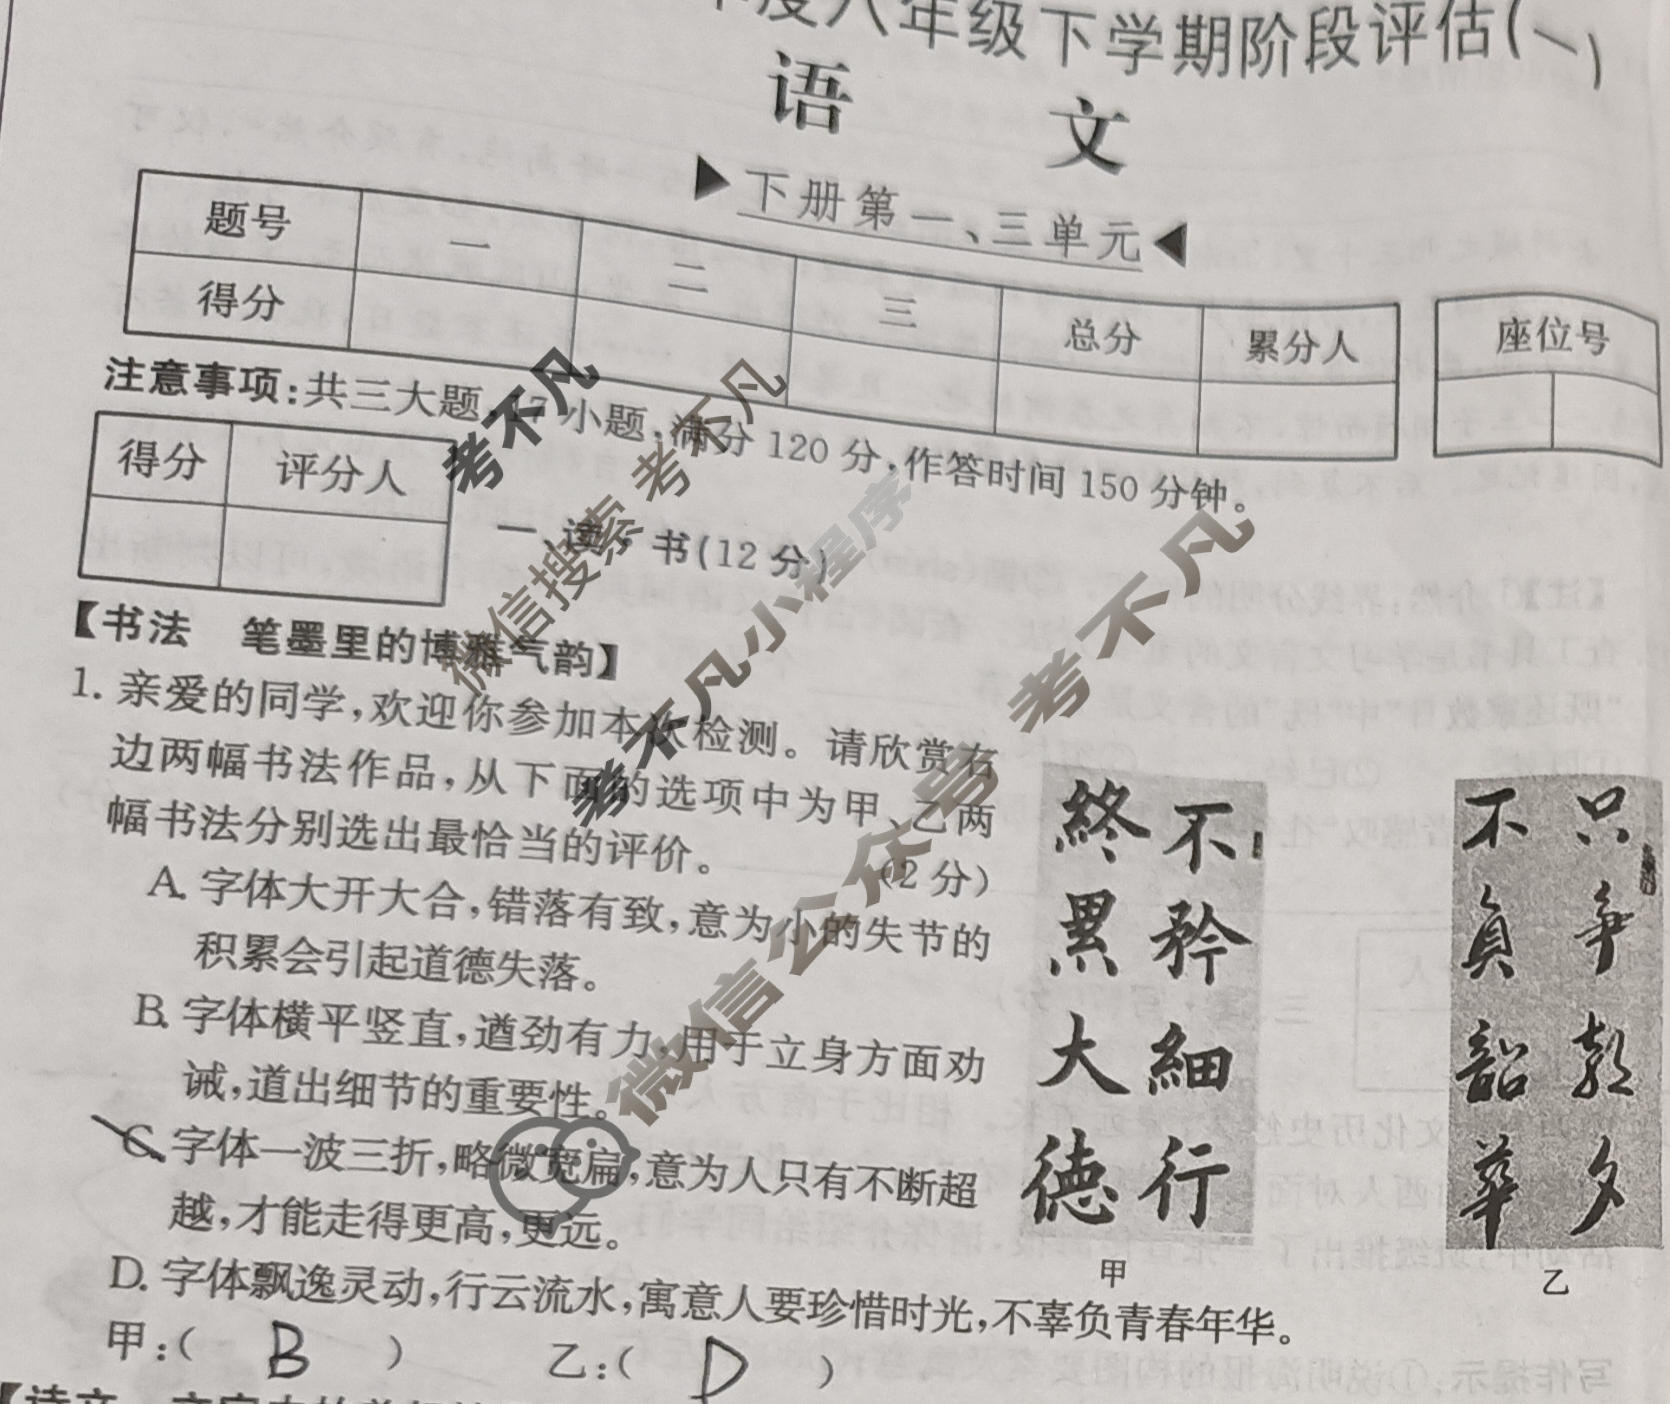 年度八年级下学期阶段评估(一)
语 文
▶下册第一、三单元◀
题号 一 二 三 总分 累分人
得分
座位号
注意事项:共三大题,17小题,满分120分,作答时间150分钟。
得分 评分人
一、读·书(12分)
【书法 笔墨里的博雅气韵】
1. 亲爱的同学,欢迎你参加本次检测。请欣赏右
边两幅书法作品,从下面的选项中为甲、乙两
幅书法分别选出最恰当的评价。 (2分)
A. 字体大开大合,错落有致,意为小的失节的
积累会引起道德失落。
B. 字体横平竖直,遒劲有力,用于立身方面劝
诫,道出细节的重要性。
C. 字体一波三折,略微宽扁,意为人只有不断超
越,才能走得更高,更远。
D. 字体飘逸灵动,行云流水,寓意人要珍惜时光,不辜负青春年华。
甲:( B ) 乙:( D )
不矜細行
終累大德
甲
只争朝夕
不負韶華
乙
考不凡
微信搜索 考不凡
考不凡小程序
微信公众号 考不凡